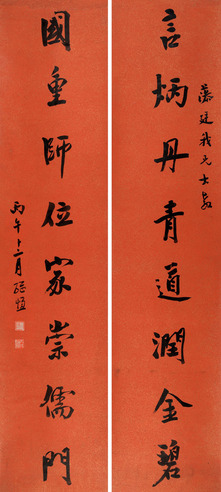 藻廷我兄大教
言炳丹青道潤金碧
國重師位家崇儒門
丙午十二月